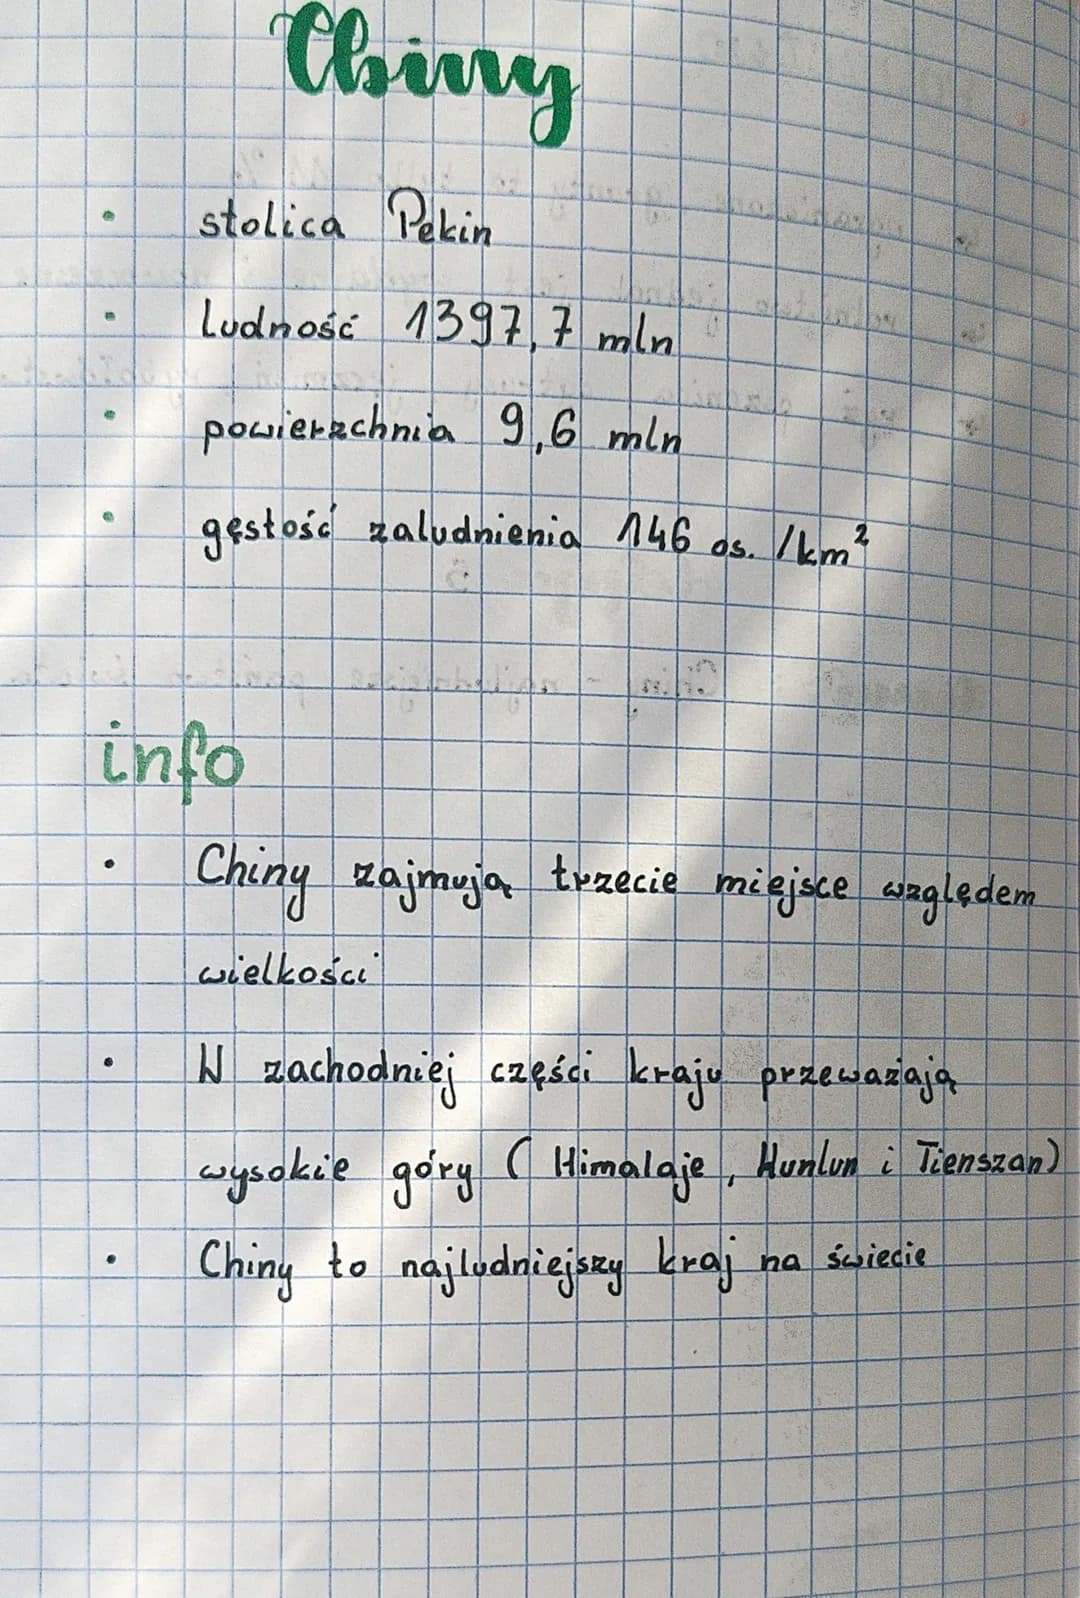 Chiny
• stolica Pekin
• ludność 1397,7 mln
• powierzchnia 9,6 mln
• gęstość zaludnienia 146 os. /km²
info
• Chiny zajmują trzecie miejsce względem
wielkości
• W zachodniej części kraju przeważają
wysokie góry ( Himalaje, Hunlun i Tienszan)
• Chiny to najludniejszy kraj na świecie